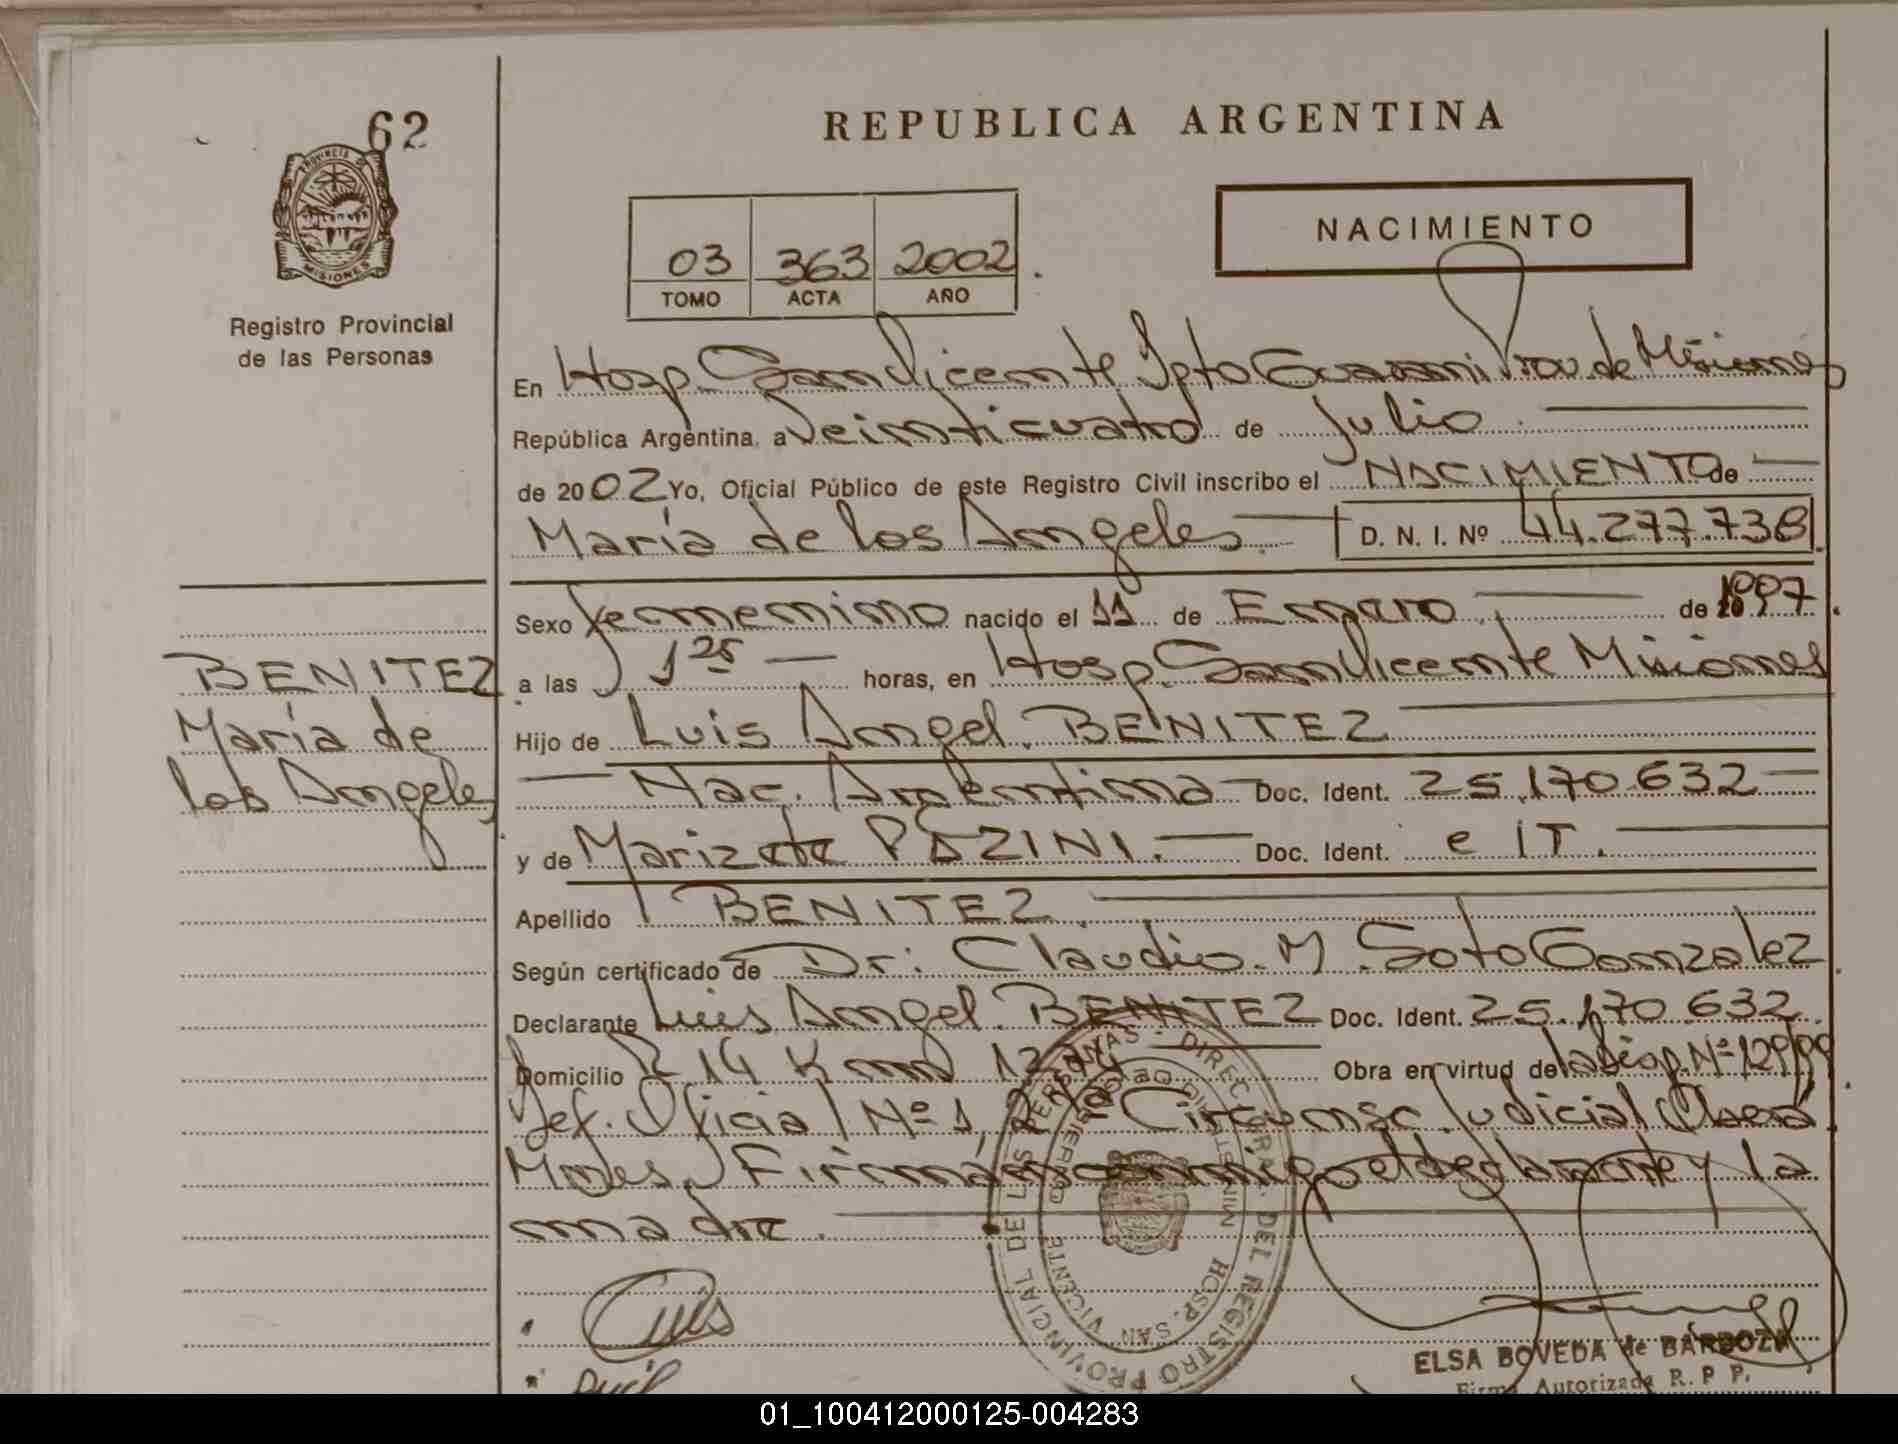 62
PROVINCIA DE
MISIONES
Registro Provincial
de las Personas
REPUBLICA ARGENTINA
03 363 2002
TOMO ACTA AÑO
NACIMIENTO
En Hosp. San Vicente Dpto Guarani Prov. de Misiones
República Argentina, a Veinticuatro de Julio
de 2002 Yo, Oficial Público de este Registro Civil inscribo el NACIMIENTO de
María de los Angeles D. N. I. Nº 44.277.738
Sexo femenino nacido el 11 de Enero de 1997
a las 1 25 horas, en Hosp. San Vicente Misiones
Hijo de Luis Angel BENITEZ
Nac. Argentina Doc. Ident. 25.170.632
y de Marizete PAZINI. Doc. Ident. e IT.
Apellido BENITEZ
Según certificado de Dr. Claudio. M. Soto Gonzalez
Declarante Luis Angel BENITEZ Doc. Ident. 25.170.632
Domicilio R 14 Km Obra en virtud de la Disp. Nº 129/99
Def. Oficial Nº 1, 2 da Circunsc. Judicial Oberá
Mnes. Firman conmigo el declarante y la
madre.
BENITEZ
María de
los Angeles
DIREC. GRAL. DEL REGISTRO PROVINCIAL DE LAS PERSONAS
HOSP. SAN VICENTE
Luis
ELSA BOVEDA de BARBOZA
Firma Autorizada R. P. P.
01_100412000125-004283